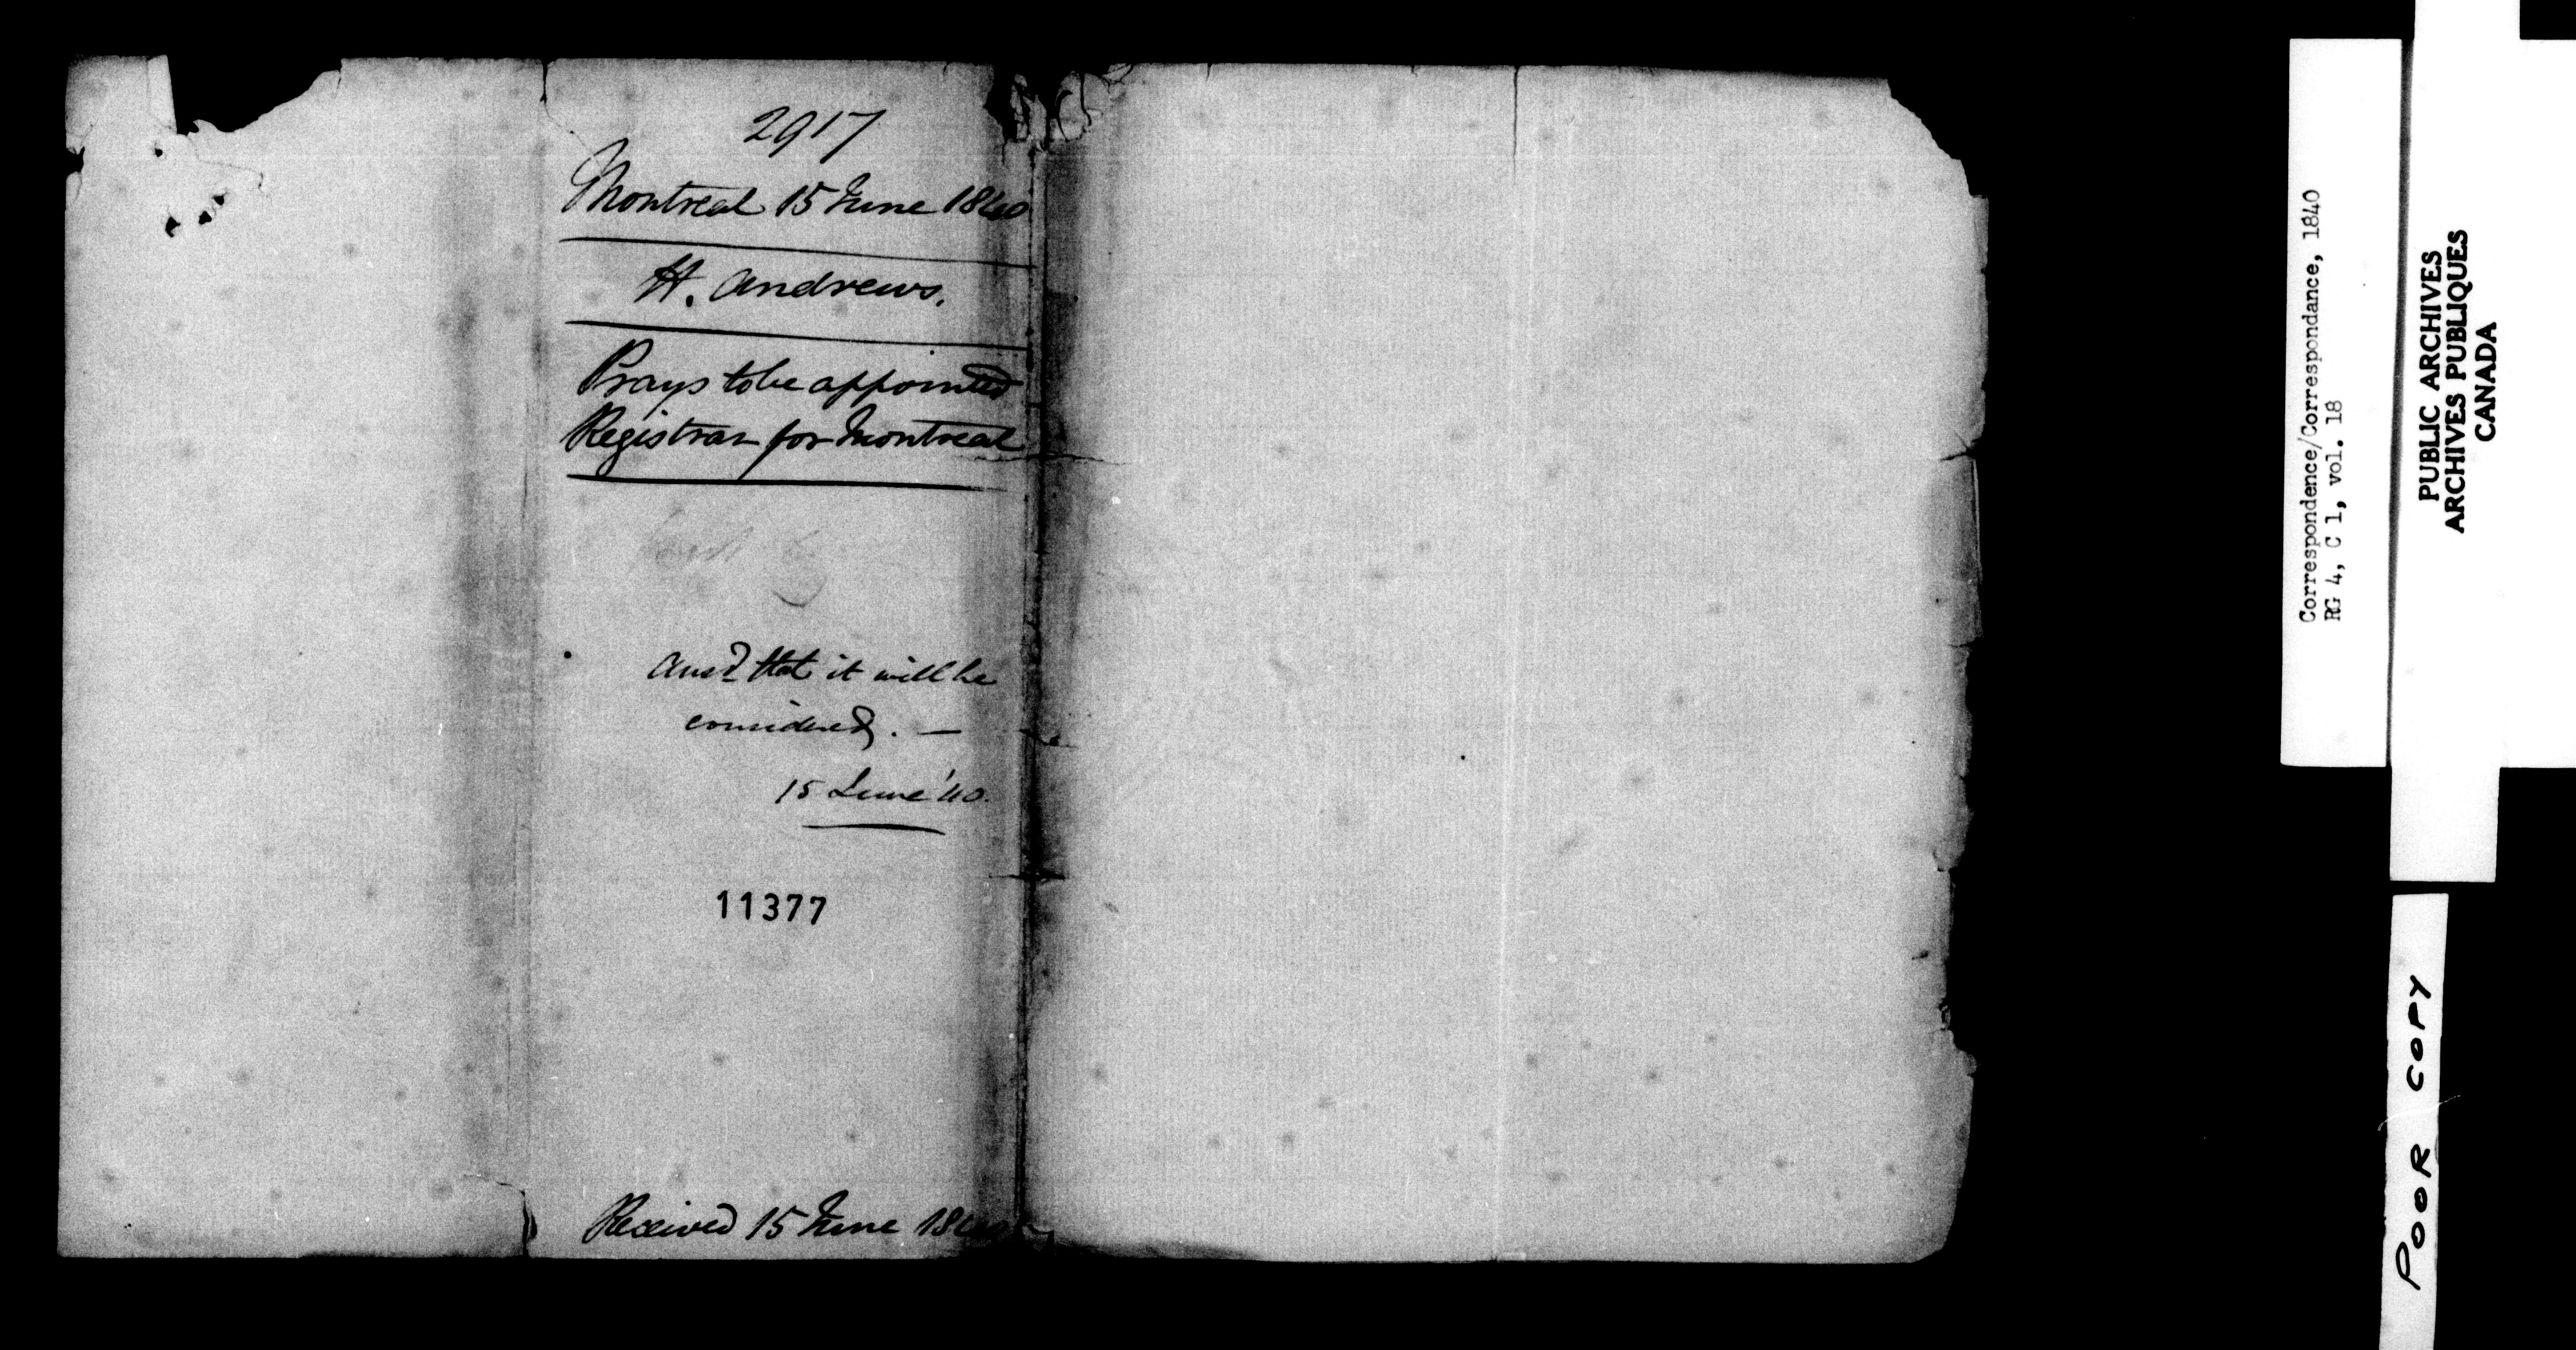 2917
Montreal 15 June 1840
H. Andrews.
Prays to be appointed
Registrar for Montreal
Ansd that it will be
considered. —
15 June '40.
11377
Received 15 June 1840
Correspondence/Correspondance, 1840
RG 4, C 1, vol. 18
PUBLIC ARCHIVES
ARCHIVES PUBLIQUES
CANADA
POOR COPY